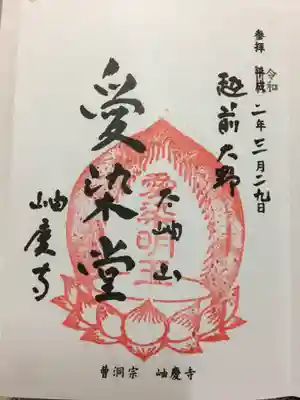 参拝 令和 二年三月二九日
越前大野
愛染堂
大岫山
愛染明王
岫慶寺
曹洞宗 岫慶寺